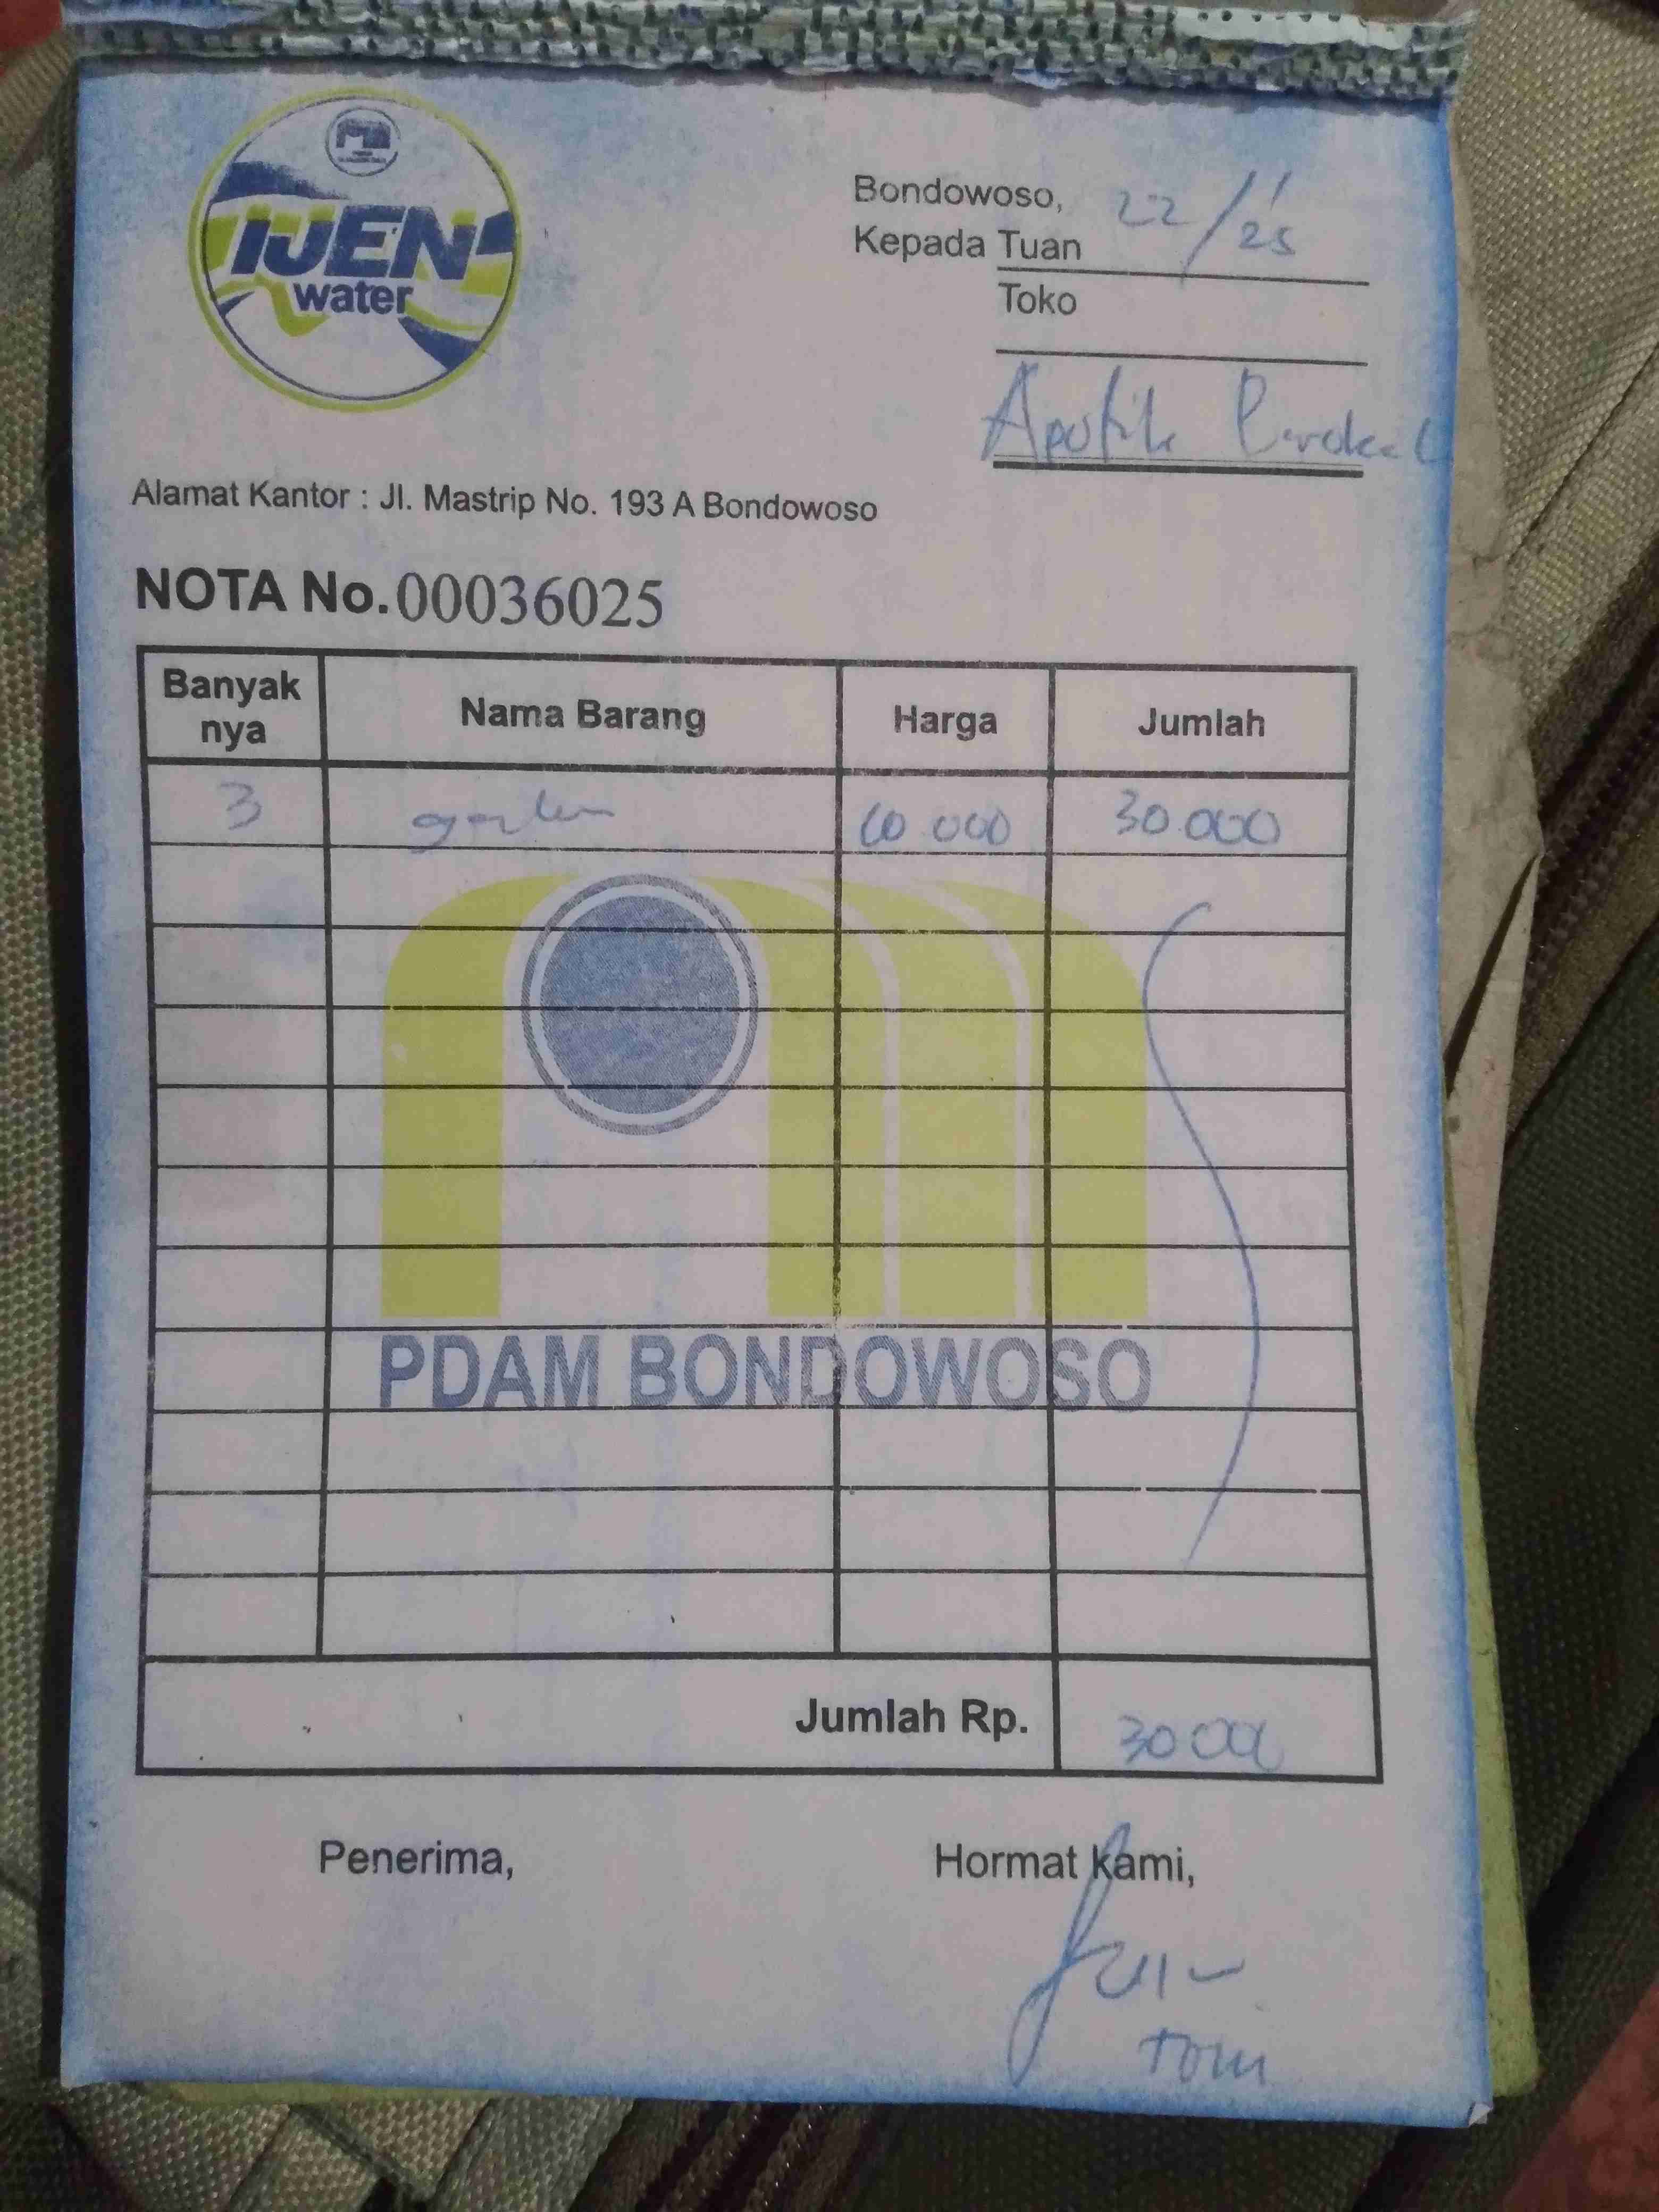 IJEN
water
Bondowoso, 22/1/25
Kepada Tuan
Toko
Apotik
Alamat Kantor : Jl. Mastrip No. 193 A Bondowoso
NOTA No. 00036025
Banyak nya Nama Barang Harga Jumlah
3 10.000 30.000
PDAM BONDOWOSO
Jumlah Rp. 30 000
Penerima, Hormat kami,
Tom